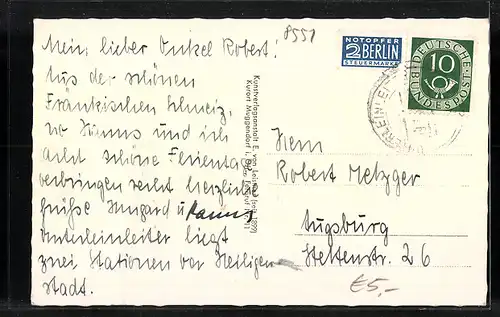 8551
Mein lieber Onkel Robert!
Aus der schönen
Fränkischen Schweiz,
wo Hanns und ich
acht schöne Ferientage
verbringen recht herzliche
Grüße Irmgard u Hanns
Unterleinleiter liegt
zwei Stationen vor Heiligen-
stadt.
NOTOPFER
2 BERLIN
STEUERMARKE
DEUTSCHE
BUNDESPOST
10
Kunstverlagsanstalt E. von
Kurort Muggendorf i.
Herrn
Robert Metzger
Augsburg
Stettenstr. 26
€5,-